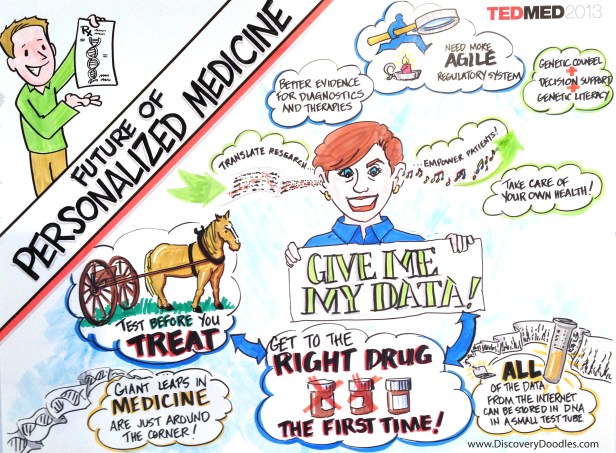 Rx
FUTURE OF
PERSONALIZED MEDICINE
TEDMED2013
NEED MORE
AGILE
REGULATORY SYSTEM
GENETIC COUNSEL
+
DECISION SUPPORT
+
GENETIC LITERACY
BETTER EVIDENCE
FOR DIAGNOSTICS
AND THERAPIES
TRANSLATE RESEARCH...
EMPOWER PATIENTS!
TAKE CARE OF
YOUR OWN HEALTH!
GIVE ME
MY DATA!
TEST BEFORE YOU
TREAT
GET TO THE
RIGHT DRUG
THE FIRST TIME!
GIANT LEAPS IN
MEDICINE
ARE JUST AROUND
THE CORNER!
ALL
OF THE DATA
FROM THE INTERNET
CAN BE STORED IN DNA
IN A SMALL TEST TUBE.
www.DiscoveryDoodles.com